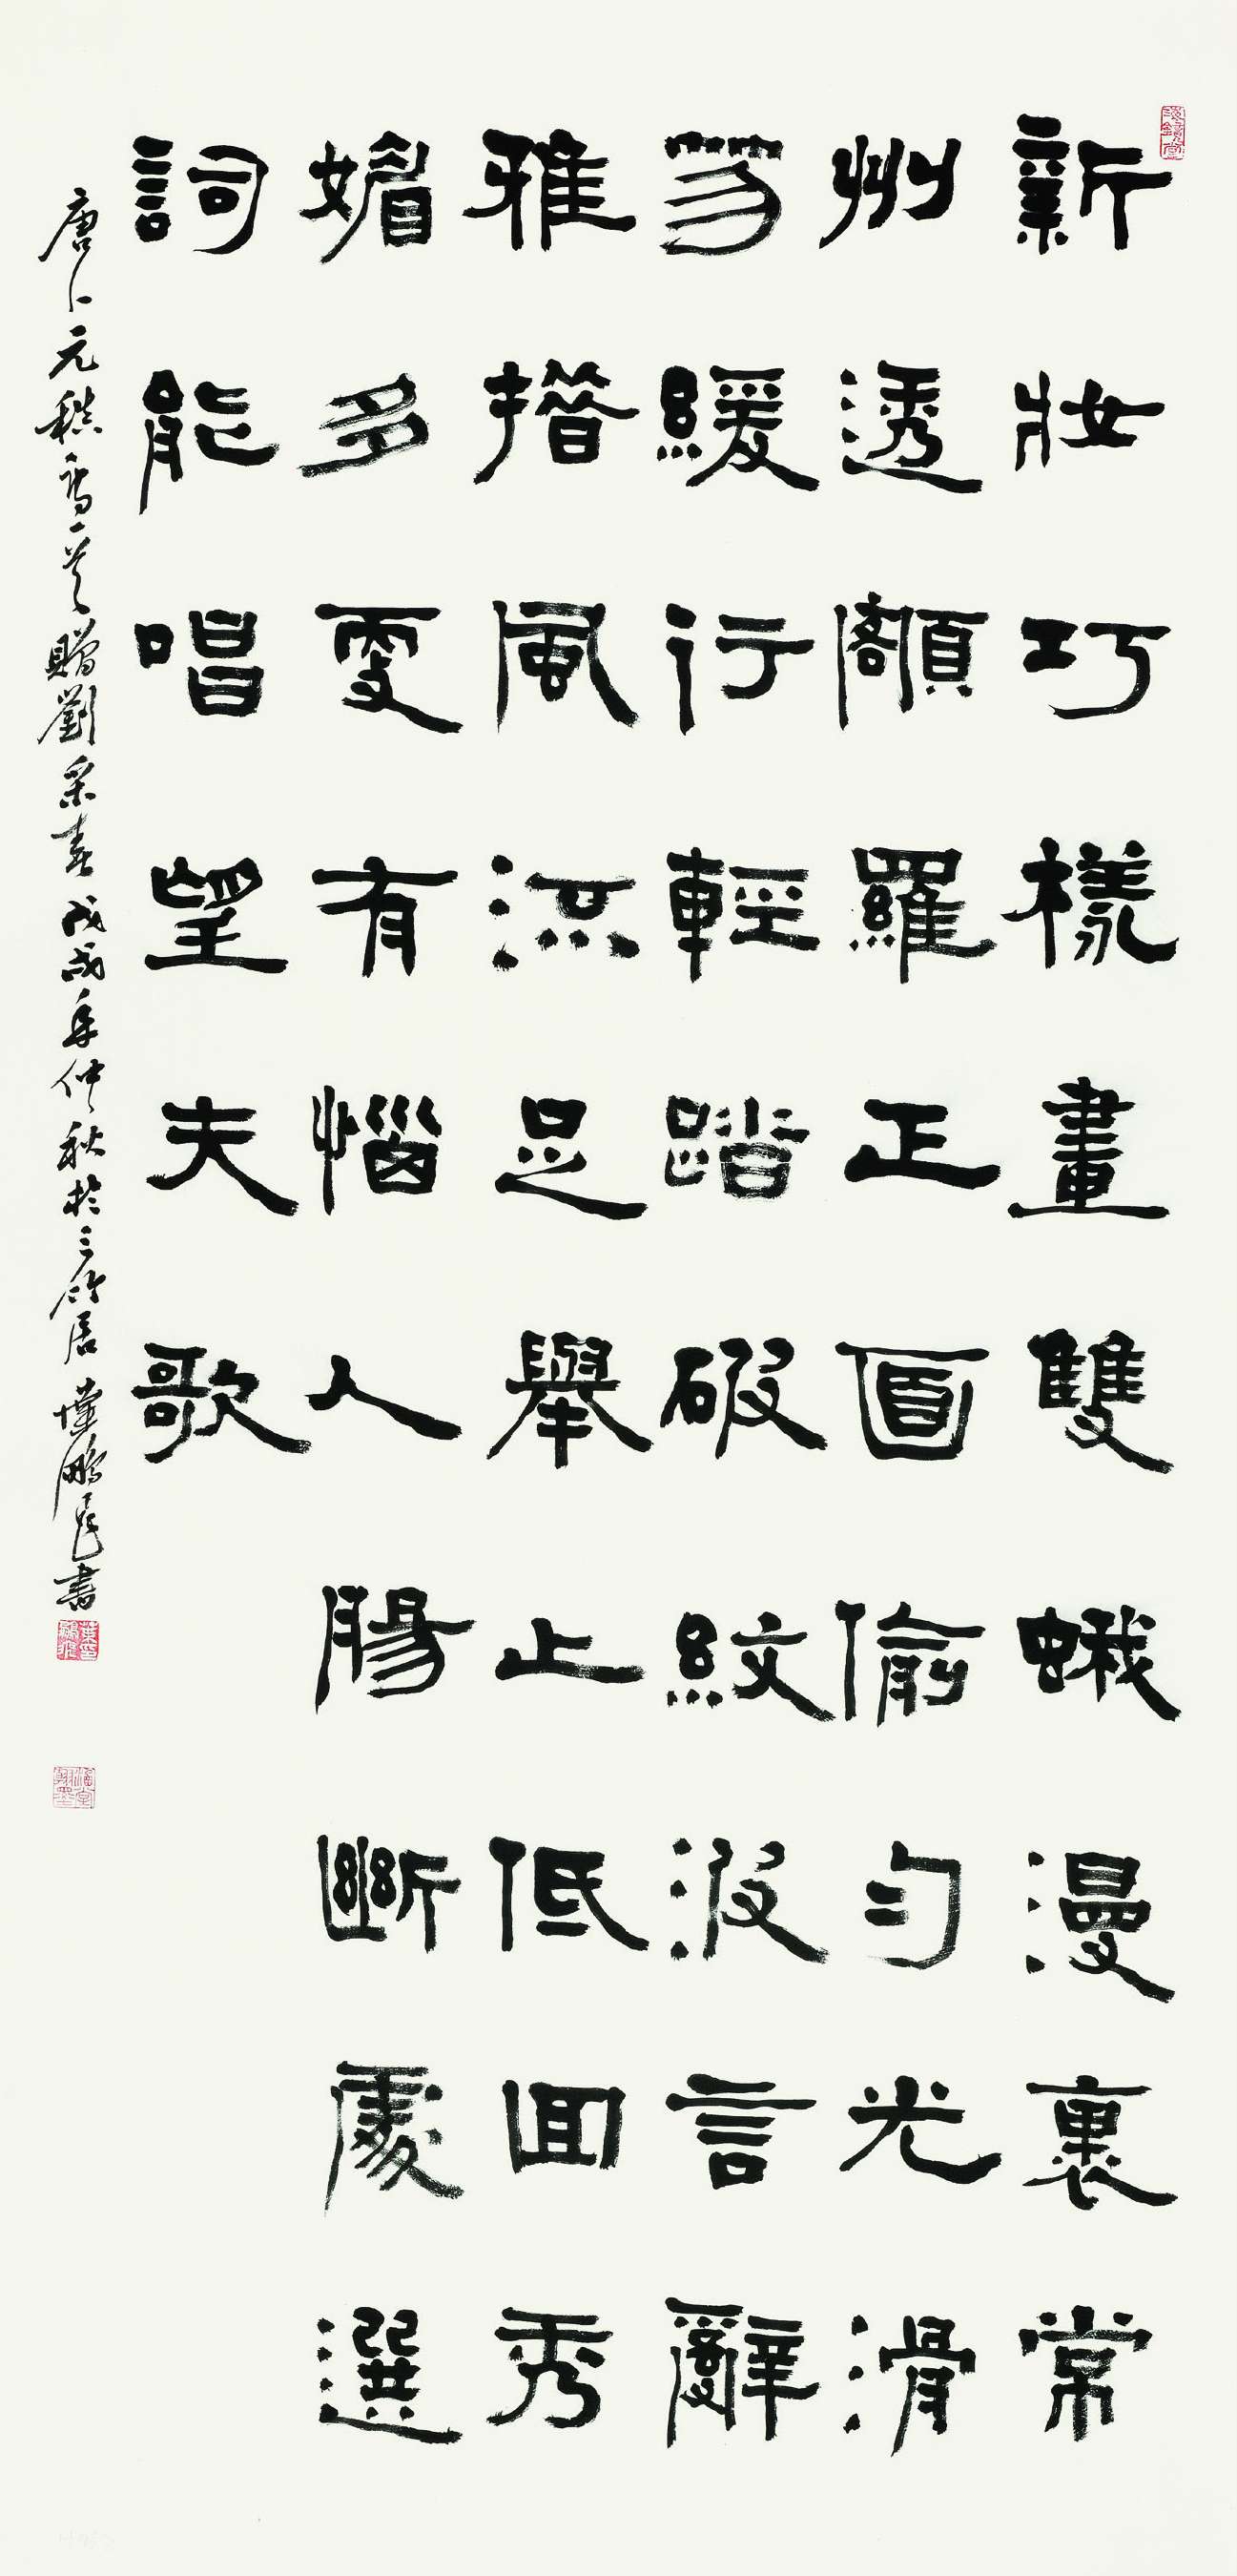 新妝巧樣畫雙蛾漫裏常
州透額羅正面偷勻光滑
笏緩行輕踏破紋波言辭
雅措風流足舉止低回秀
媚多更有惱人腸斷處選
詞能唱望夫歌
唐人元稹一首贈劉采春戊戌年仲秋於三竹居葉鵬飛書